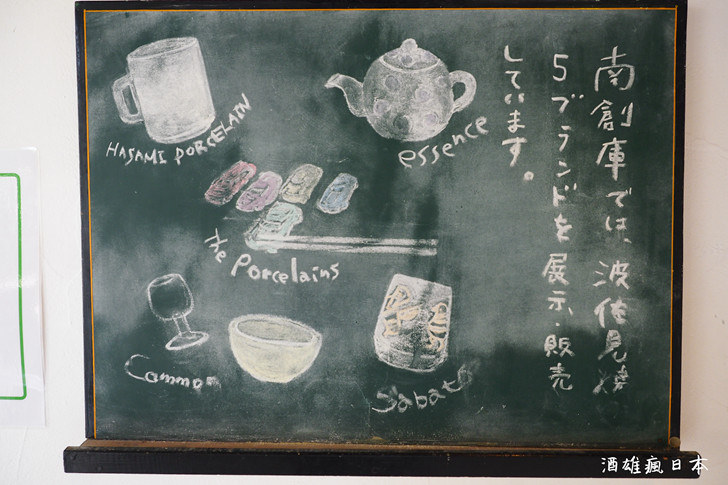 南創庫では、波佐見焼
5ブランドを展示・販売
しています。
HASAMI PORCELAIN
essence
the Porcelains
Common
Sabato
酒雄瘋日本